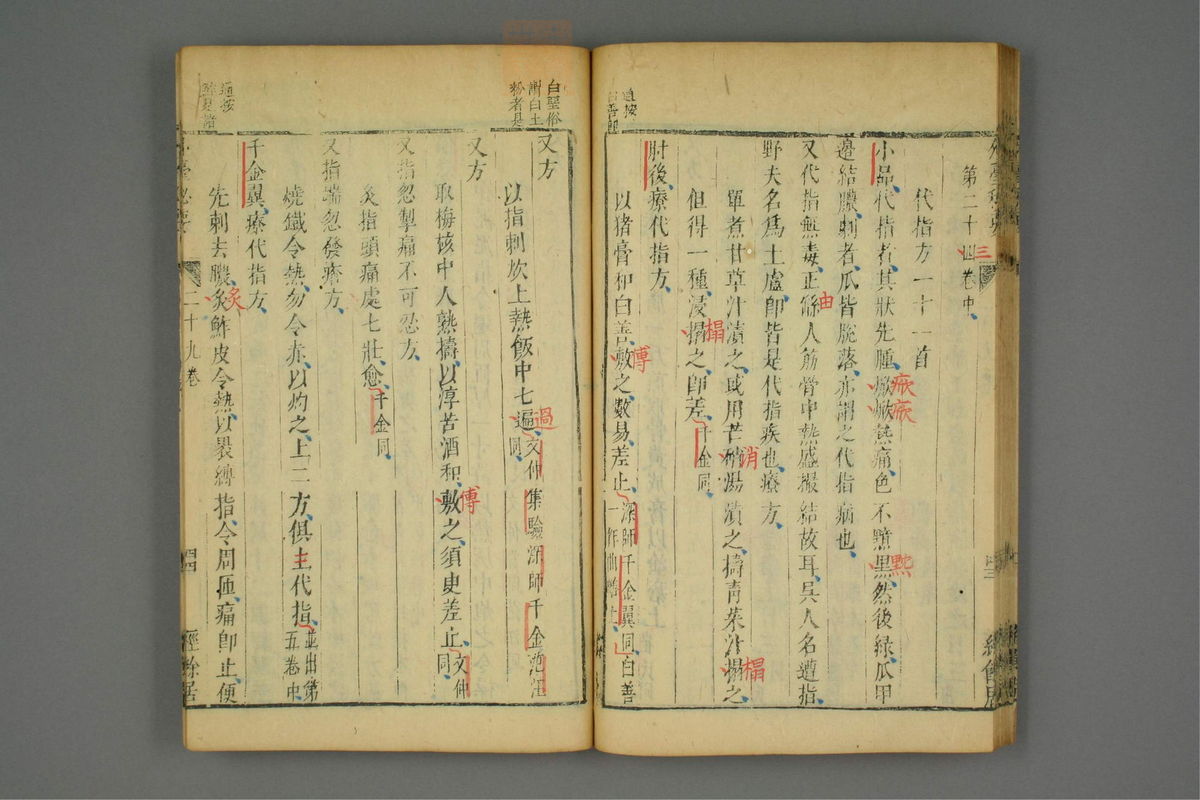 第二十四卷中
三
代指方一十一首
小品代指者其狀先腫焮焮熱痛色不黯黑然後緣爪甲
㾱㾱
黑
邊結膿剌者爪皆脫落亦謂之代指病也
又代指無毒正條人筋骨中熱盛撮結故耳吳人名遭指
由
野夫名爲土盧卽皆是代指疾也療方
單煮甘草汁漬之或用芒硝湯漬之擣青菜汁搨之
消
榻
但得一種浸搨之卽差千金同
榻
肘後療代指方
以猪膏和白善敷之數易差止深師千金翼同白善
傅
一作曲蟮土
白堊俗
謂白土
粉者是
又方
以指刺炊上熱飯中七遍文仲集驗深師千金范汪
過
同
又方
取梅核中人熟擣以淳苦酒和敷之須臾差止文仲
傅
同
又指忽掣痛不可忍方
灸指頭痛處七壯愈千金同
又指端忽發瘡方
燒鐵令熱勿令赤以灼之上二方俱主代指並出第
五卷中
千金翼療代指方
先刺去膿灸鮓皮令熱以裹縛指令周匝痛卽止便
炙
二十九卷
經餘居